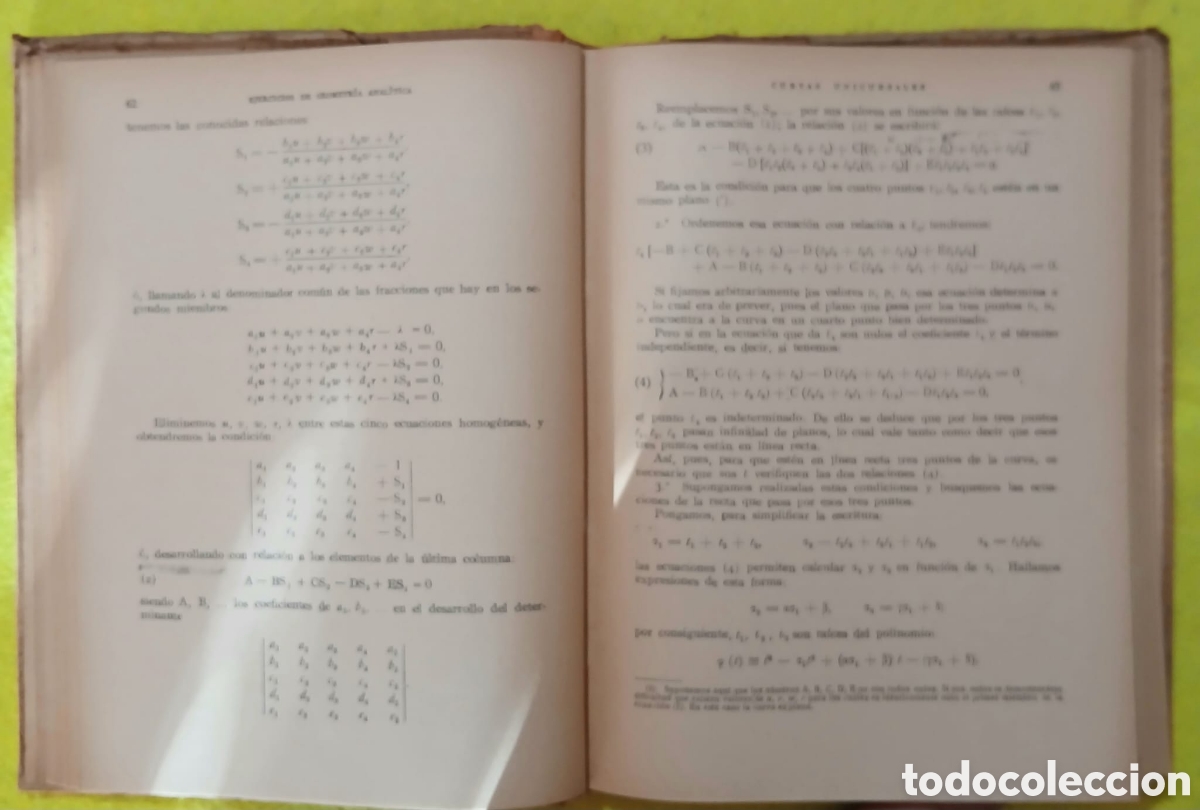 62 EJERCICIOS DE GEOMETRÍA ANALÍTICA
tenemos las conocidas relaciones
S₁ = −
S₂ = +
S₃ = −
S₄ = +
ó, llamando λ al denominador común de las fracciones que hay en los se-
gundos miembros:
a₁u + a₂v + a₃w + a₄r − λ = 0,
b₁u + b₂v + b₃w + b₄r + λS₁ = 0,
c₁u + c₂v + c₃w + c₄r − λS₂ = 0,
d₁u + d₂v + d₃w + d₄r + λS₃ = 0,
e₁u + e₂v + e₃w + e₄r − λS₄ = 0.
Eliminemos u, v, w, r, λ entre estas cinco ecuaciones homogéneas, y
obtendremos la condición:
a₁ a₂ a₃ a₄ − 1
b₁ b₂ b₃ b₄ + S₁
c₁ c₂ c₃ c₄ − S₂ = 0,
d₁ d₂ d₃ d₄ + S₃
e₁ e₂ e₃ e₄ − S₄
ó, desarrollando con relación a los elementos de la última columna:
(2) A − BS₁ + CS₂ − DS₃ + ES₄ = 0
siendo A, B, ... los coeficientes de a₅, b₅, ... en el desarrollo del deter-
minante
a₁ a₂ a₃ a₄ a₅
b₁ b₂ b₃ b₄ b₅
c₁ c₂ c₃ c₄ c₅
d₁ d₂ d₃ d₄ d₅
e₁ e₂ e₃ e₄ e₅
CURVAS UNICURSALES 63
Reemplacemos S₁, S₂, ... por sus valores en función de las raíces t₁, t₂,
t₃, t₄, de la ecuación (1); la relación (2) se escribirá:
(3)
Esta es la condición para que los cuatro puntos t₁, t₂, t₃, t₄ estén en un
mismo plano (¹).
2.º Ordenemos esa ecuación con relación a t₄; tendremos:
t₄ [−B + C (t₁ + t₂ + t₃) − D (t₂t₃ + t₃t₁ + t₁t₂) + Et₁t₂t₃]
+ A − B (t₁ + t₂ + t₃) + C (t₂t₃ + t₃t₁ + t₁t₂) − Dt₁t₂t₃ = 0.
Si fijamos arbitrariamente los valores t₁, t₂, t₃, esa ecuación determina a
t₄, lo cual era de prever, pues el plano que pasa por los tres puntos t₁, t₂,
encuentra a la curva en un cuarto punto bien determinado.
Pero si en la ecuación que da t₄ son nulos el coeficiente t₄ y el término
independiente, es decir, si tenemos:
(4) − B + C (t₁ + t₂ + t₃) − D (t₂t₃ + t₃t₁ + t₁t₂) + Et₁t₂t₃ = 0,
A − B (t₁ + t₂ t₃) + C (t₂t₃ + t₃t₁ + t₁t₂) − Dt₁t₂t₃ = 0,
el punto t₄ es indeterminado. De ello se deduce que por los tres puntos
t₁, t₂, t₃ pasan infinidad de planos, lo cual vale tanto como decir que esos
tres puntos están en línea recta.
Así, pues, para que estén en línea recta tres puntos de la curva, es
necesario que sus t verifiquen las dos relaciones (4).
3.º Supongamos realizadas estas condiciones y busquemos las ecua-
ciones de la recta que pasa por esos tres puntos.
Pongamos, para simplificar la escritura:
s₁ = t₁ + t₂ + t₃, s₂ = t₂t₃ + t₃t₁ + t₁t₂, s₃ = t₁t₂t₃,
las ecuaciones (4) permiten calcular s₂ y s₃ en función de s₁. Hallamos
expresiones de esta forma:
s₂ = αs₁ + β, s₃ = γs₁ + δ;
por consiguiente, t₁, t₂, t₃ son raíces del polinomio:
φ (t) ≡ t³ − s₁t² + (αs₁ + β) t − (γs₁ + δ);
todocoleccion
todocoleccion.net